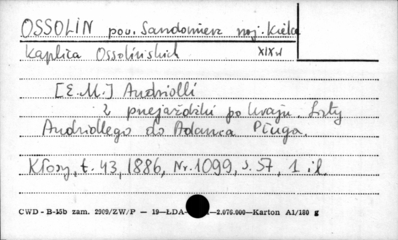 OSSOLIN pow. Sandomierz woj. Kielce
Kaplica Ossolińskich XIX w
[E.M.] Andriolli
Z przejażdżki po kraju. Listy
Andriollego do Adama Pługa.
Kłosy, t. 43, 1886, Nr. 1099, s. 57, 1 il.
CWD - B-15b zam. 2909/ZW/P — 19—ŁDA— —2.070.000—Karton A1/180 g